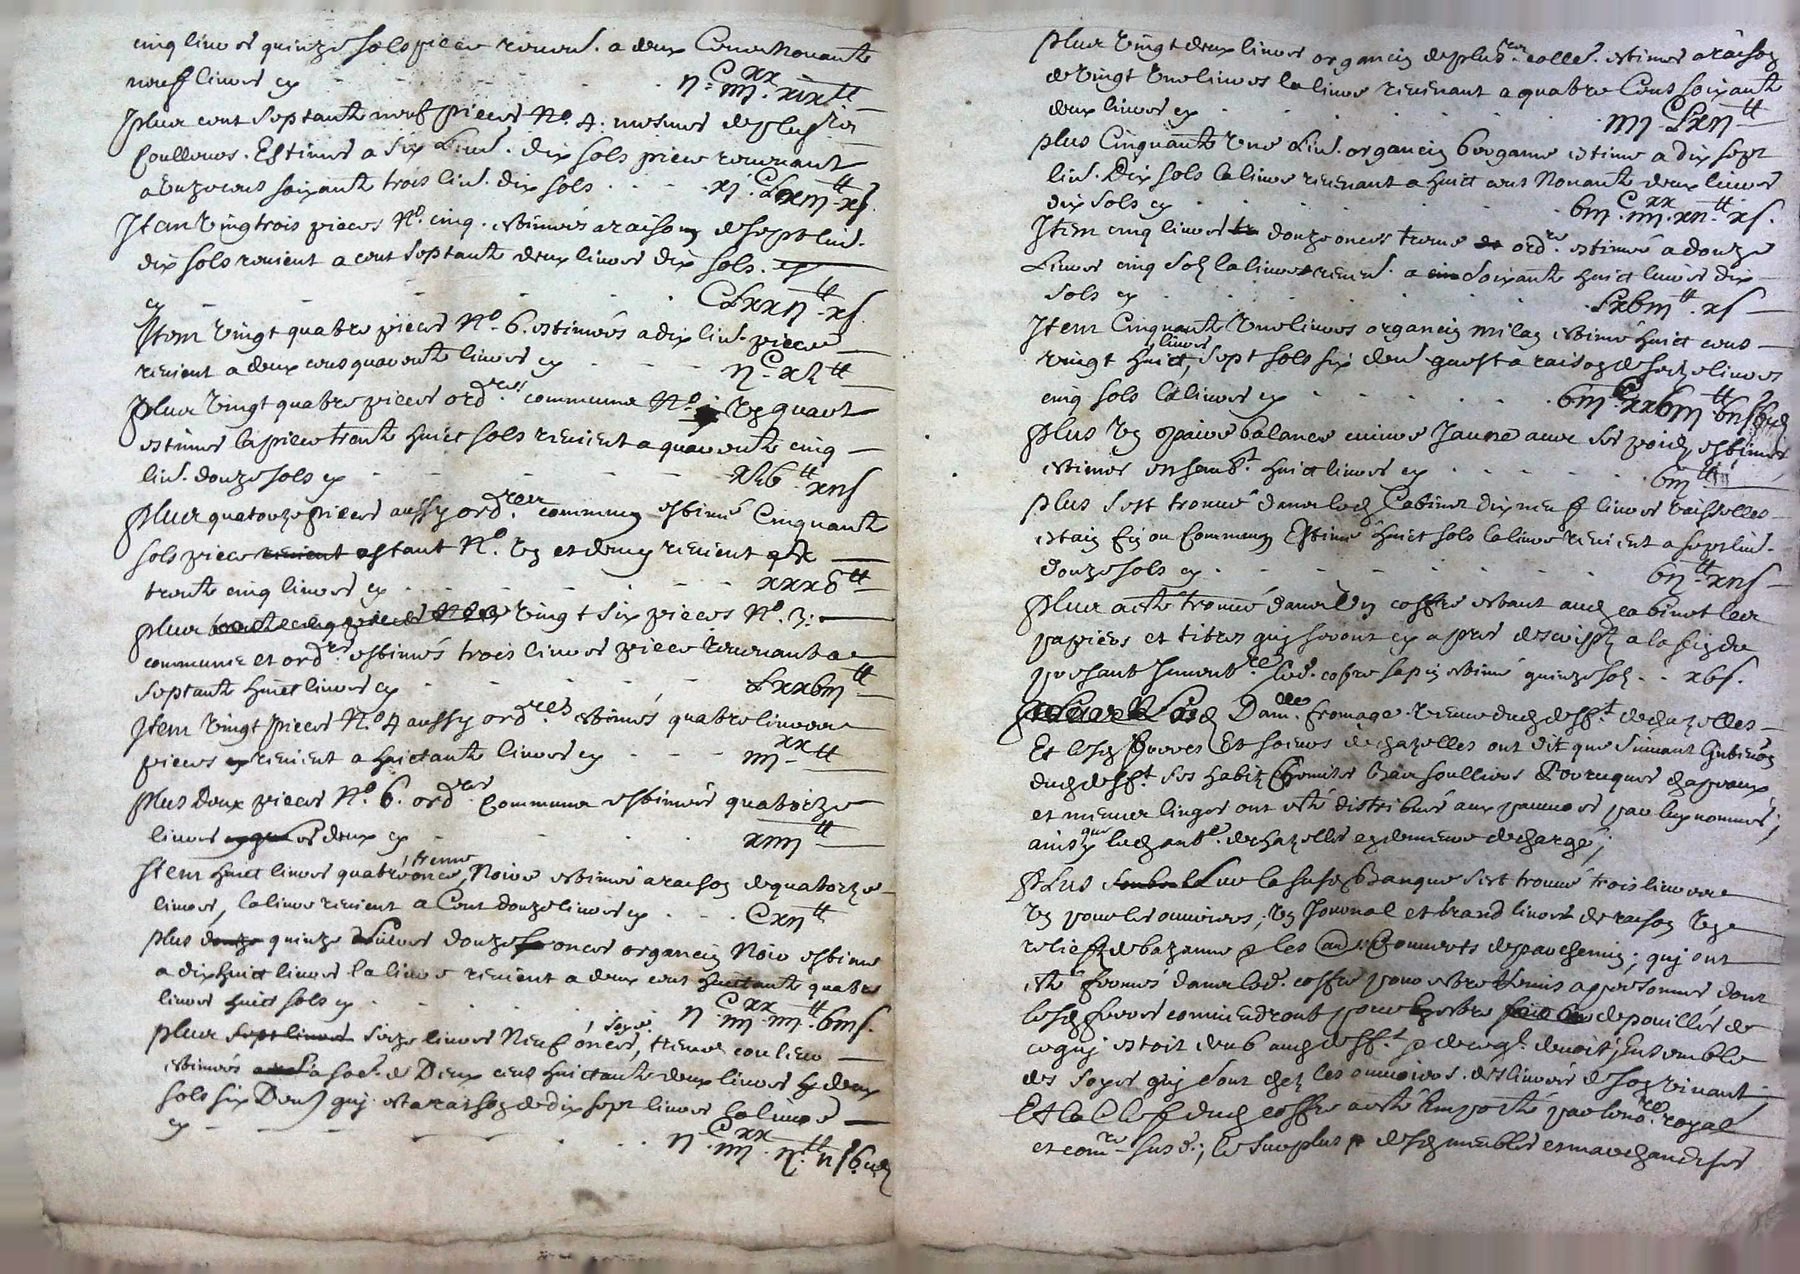 cinq livres quinze sols piece revient a deux Cens Nonante
neuf livres cy . . . ij.C iiij.xx xix tt
Plus cent septante neuf pieces No. 4. mesmes de plusrs
Coulleurs. Estimés a six Livs. dix sols piece revenant
a unze cens soixante trois livs. dix sols . . . xj.C Lxiij tt xs.
Item vingtrois pieces No. cinq. estimées a raison de sept livs.
dix sols revient a cent septante deux livres dix sols.
cy . . . C Lxxij tt xs.
Item vingt quatre pieces No. 6. estimées a dix livs. piece
revient a deux cens quarente livres cy . . . ij C xL tt
Plus vingt quatre pieces ordres commune No. ung quart
estimes la piece trente huict sols revient a quarente cinq
livs. douze sols cy . . . xL6 tt xijs
Plus quatorze pieces aussy ordres commung estimé Cinquante
sols piece revient estant No. ung et demy revient a
trente cinq livres cy . . . xxx6 tt
Plus vingt six pieces No. 3.
commune et ordre. estimés trois livres piece revenant a
septante huict livres cy . . . Lxx6iij tt
Item vingt pieces No. 4 aussy ordres estimés quatre livres
pieces revient a huictante livres cy . . . iiij xx tt
Plus Deux pieces No. 6. ordres Commune estimées quatorze
livres les deux cy . . . xiiij tt
Item huict livres quatre onces, trame Noire estimé a raison de quatorze
livres, la livre revient a Cent douze livres cy . . . Cxij tt
Plus quinze Livres douze onces organcin Noir estimé
a dix huict livres la livre revient a deux cens huictante quatre
livres huict sols cy . . . ij C iiij xx iiij tt 6iijs.
Plus sept livres seize livres Neuf onces, soye trame couleur
estimés a la so. de Deux cens huictante deux livres deux
sols six Den) quy est a raison de dix sept livres la livre
cy . . . ij C iiij xx ij tt ijs 6 d
Plus vingt deux livres organcin de plusrs coulle. estimés a raison
de vingt une livres la livre revenant a quatre Cens soixante
deux livres cy . . . iiij C Lxij tt
Plus Cinquante une Livs. organcin bergame estimé a dix sept
livs. Dix sols la livre revenant a huict cens Nonante deux livres
dix sols cy . . . 6iij C iiij xx xij tt xs.
Item cinq livres douze onces trame ordre estimée a douze
Livres cinq sols la livre revient. a soixante huict livres dix
sols cy . . . Lx6iij tt xs
Item Cinquante une livres organcin milan estimé huict cens
vingt huict livres, sept sols six den) quest a raison de seize livres
cinq sols la livre cy . . . 6iij C xx6iij tt 6ijs 6 d
Plus une paire balance cuivre Jaune avec ses poids estimés
estimes ensemble. huict livres cy . . . 6iij tt
Plus sest trouvé dans led. Cabinet dix neuf livres vaisselles
estain fin ou Commung Estimé huict sols la livre revient a sept livs.
douze sols cy . . . 6ij tt xijs
Plus a esté trouvé dans un coffre estant aud. cabinet les
papiers et titres quy seront cy apres descripts a la fin du
present Invent.re Led. cofre sapin estimé quinze sols . . x6s.
Lad. Damlle. fromage vefve dud. deff.t dechazelles
Et lesd. freres Et soeurs dechazelles ont dit que suivant
dud. deff.t ses habitz Chemises bas soulliers Perruques chapeaux
et menues linges ont esté distribués aux pauvres par luy nommés,
ainsy que led. dechazelles en demeure dechargé;
Plus sur la susd. Banque sest trouvé trois livres
ung pour les ouvriers; ung Journal et grand livres de raison
relief de bazanne & les couverts de parchemin; quy ont
esté fermés dans led. coffre pour estre remis a personnes dont
lesd. freres conviendront pour estre depouillés de
ce quy estoit deub aud. deff.t devoit; Ensemble
des soyes quy sont chez les ouvriers.
Et la Cleff dud. coffre a esté Emporté par royal
et com.re susd.; le surplus desd. meubles et marchandises